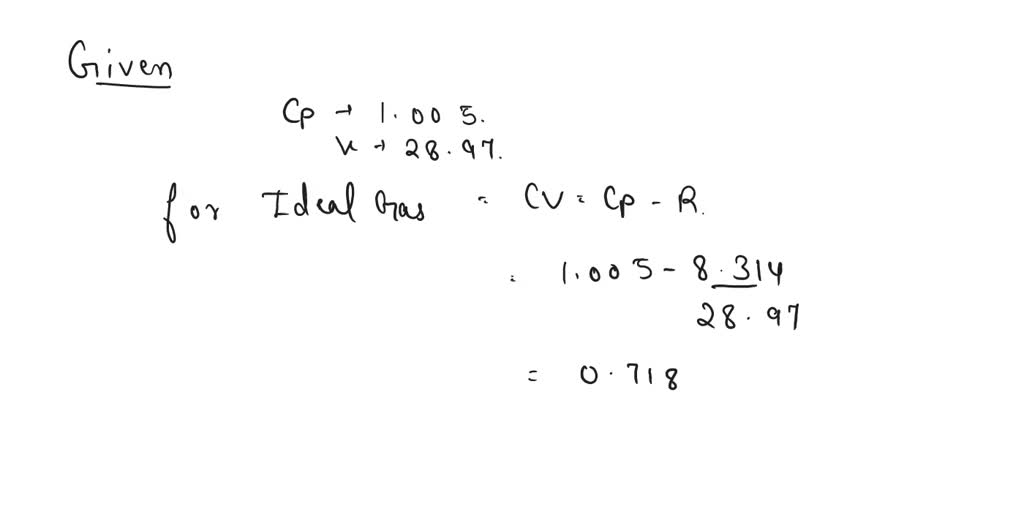 Given
Cp → 1.005.
K → 28.97.
for Ideal Gas = CV = Cp - R.
= 1.005 - 8.314
28.97
= 0.718